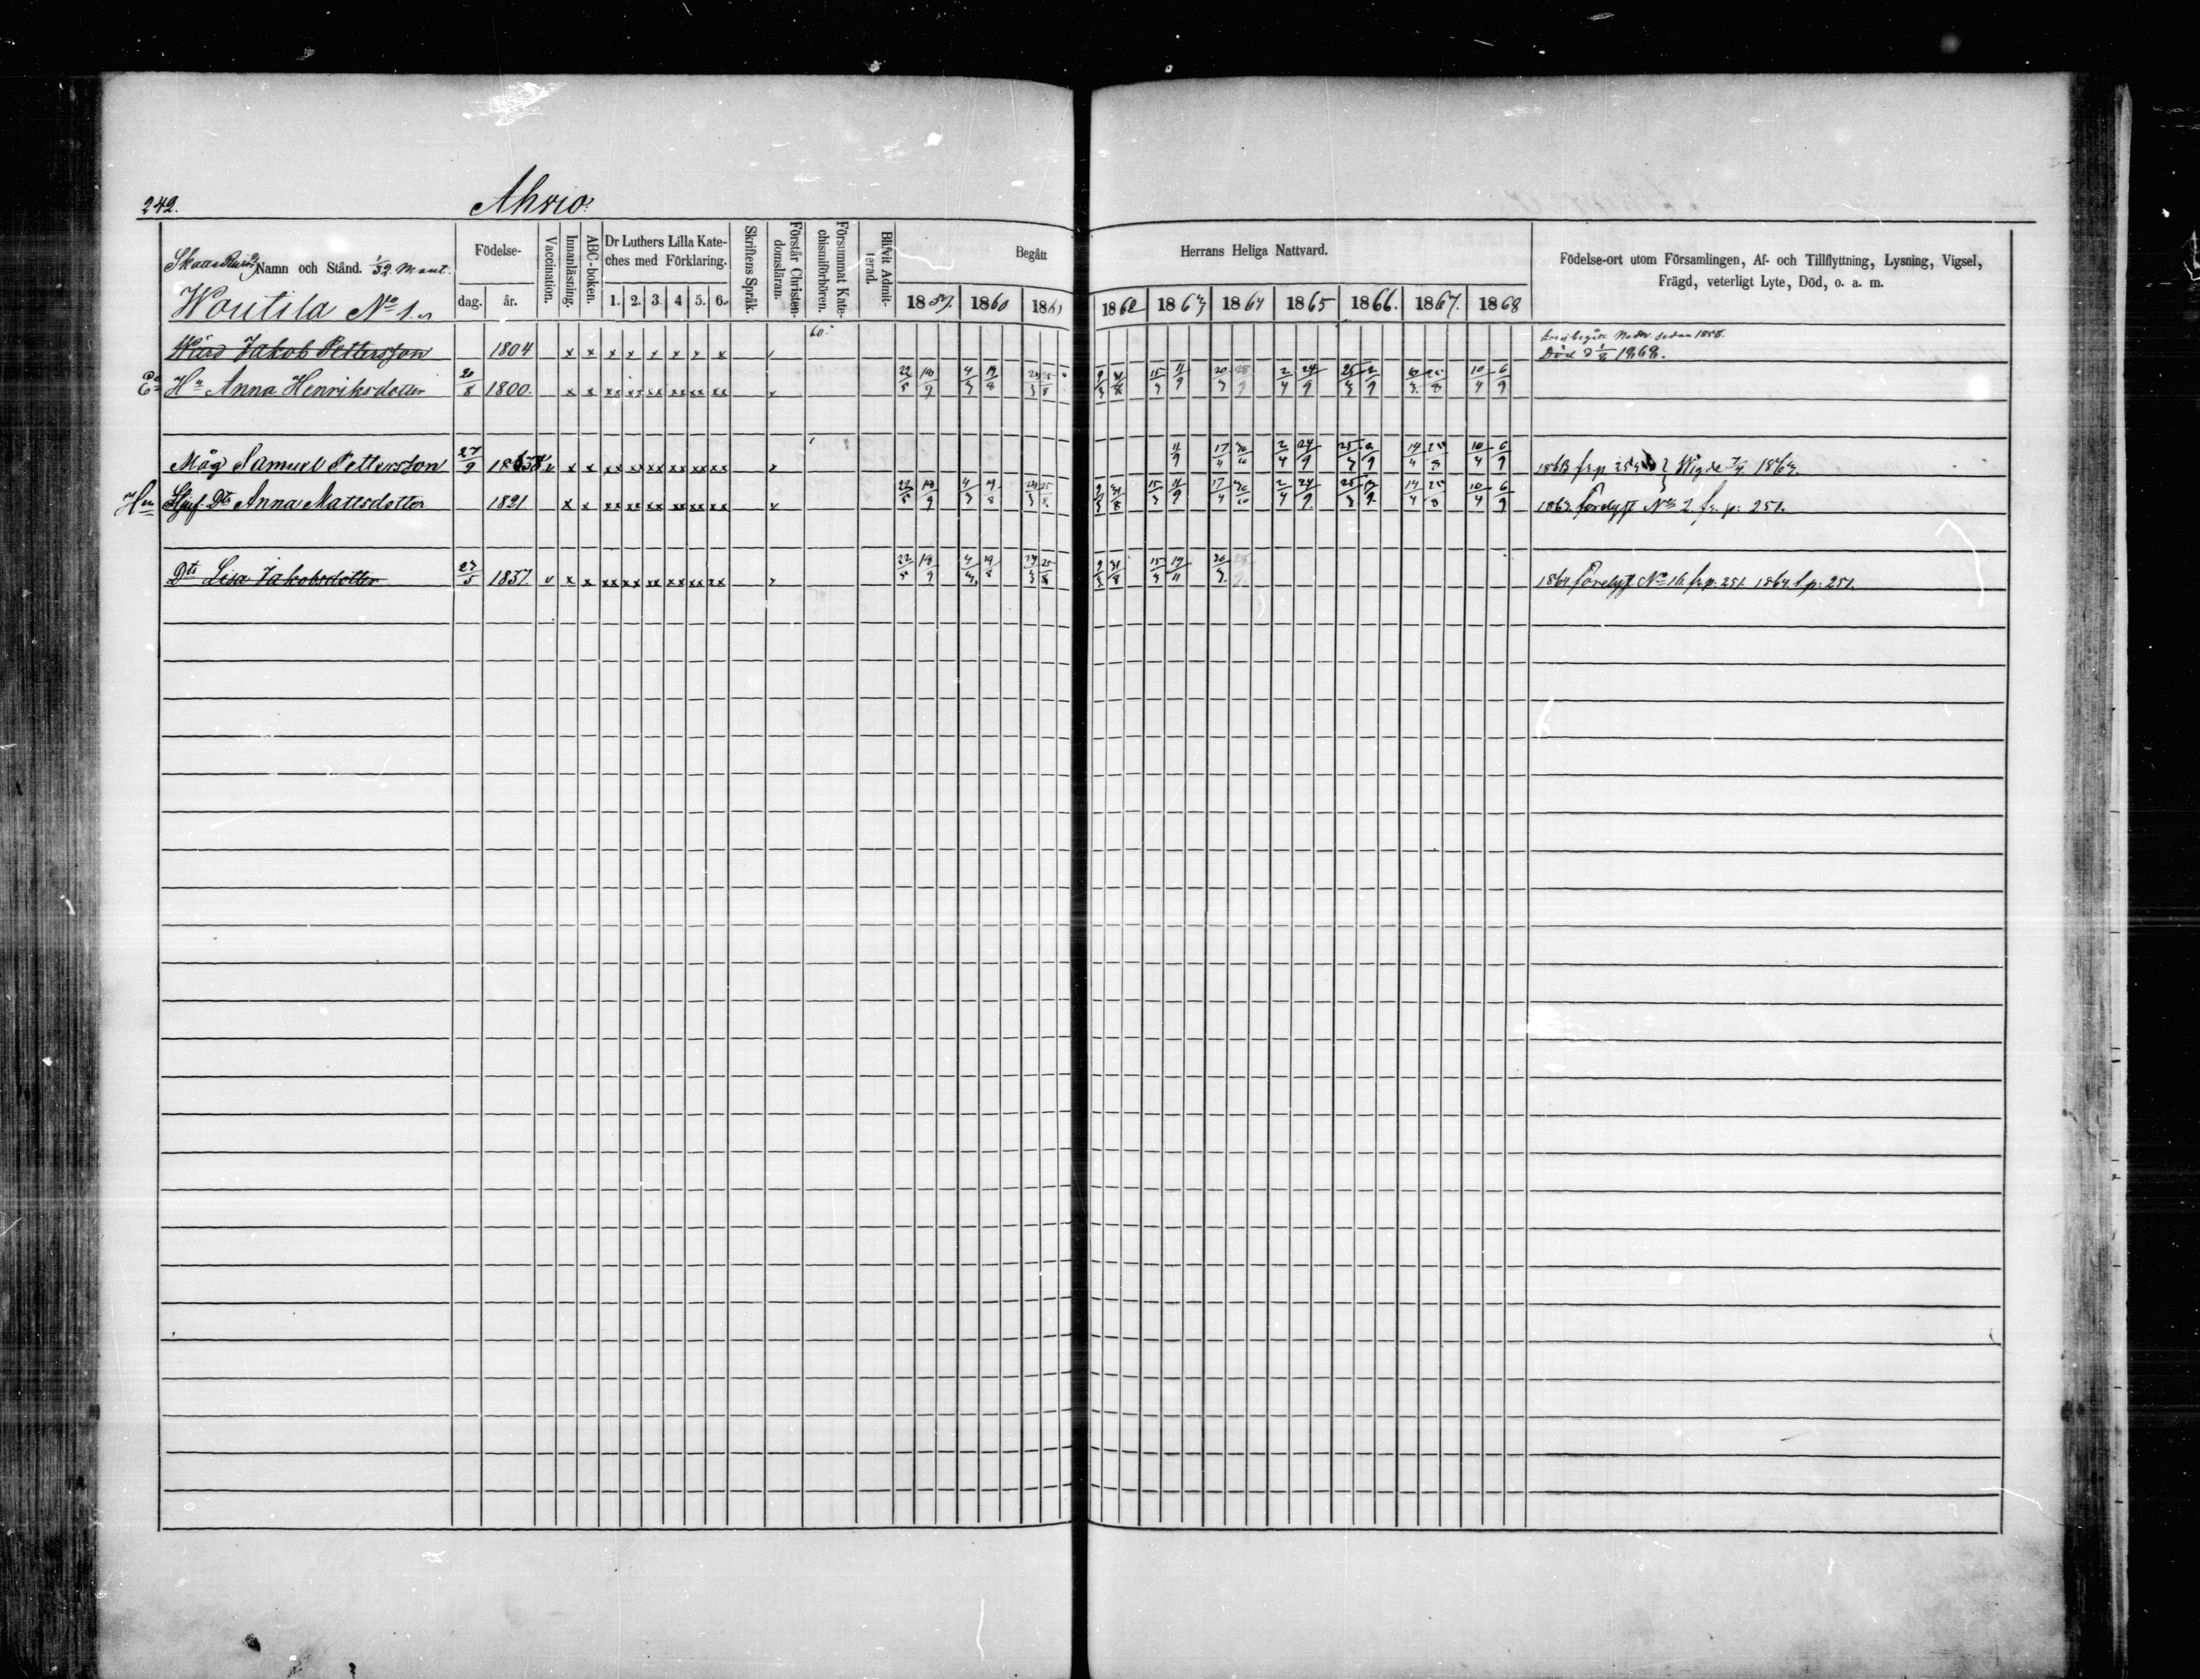 242.
Ahrio.
Skatte Namn och Stånd. 1/32 Mant.
Födelse-
dag. år.
Vaccination.
Innanläsning.
ABC-boken.
Dr Luthers Lilla Kate-
ches med Förklaring.
1. 2. 3. 4 5. 6.
Skriftens Språk.
Förstår Christen-
domsläran.
Försummat Kate-
chismiförhören.
Blifvit Admit-
terad.
Begått Herrans Heliga Nattvard.
1859. 1860 1861 1862 1863 1864 1865 1866. 1867. 1868
Födelse-ort utom Församlingen, Af- och Tillflyttning, Lysning, Vigsel,
Frägd, veterligt Lyte, Död, o. a. m.
Woutila No 1.
60.
Jakob Pettersson 1804 x x x x x x x x
Död 1868.
Hu Anna Henriksdotter 20/8 1800. x x xx xx xx xx xx xx 22/5 18/9 4/3 19/8 24/3 25/8 9/3 31/8 15/3 11/9 20/3 28/9 2/4 24/9 25/3 2/9 10/4 6/9
Måg Samuel Pettersson 27/9 v x x xx xx xx xx xx xx 11/9 17/4 30/10 2/4 24/9 25/3 2/9 14/4 25/8 10/4 6/9 1863 fr.p. Vigde 1863.
Hu Styf Dtr Anna Mattsdotter 1821 x x xx xx xx xx xx xx 22/5 18/9 4/3 19/8 24/3 25/8 9/3 31/8 15/3 11/9 17/4 30/10 2/4 24/9 25/3 2/9 14/4 25/8 10/4 6/9 1863 förelyst No 2 fr. p. 251.
Dtr Lisa Jakobsdotter 23/5 1837. v x x xx xx xx xx xx xx 22/5 18/9 4/3 19/8 24/3 25/8 9/3 31/8 15/3 14/11 20/3 1864 förelyst No 16 fr.p. 251. 1864 t.p. 251.